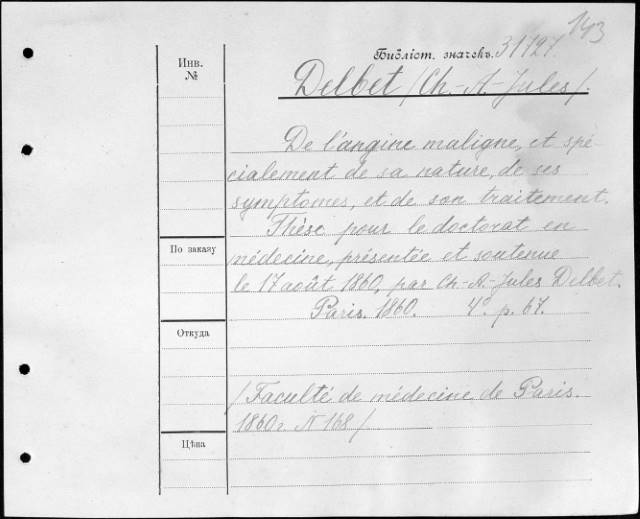 143
Инв.
№
Библіот. значекъ. 31727.
Delbet /Ch.-A. Jules/.
De l'angine maligne, et spé-
cialement de sa nature, de ses
symptomes, et de son traitement.
Thèse pour le doctorat en
По заказу
médecine, présentée et soutenue
le 17 août 1860, par Ch.-A.-Jules Delbet.
Paris. 1860. 4º. p. 67.
Откуда
/Faculté de médecine de Paris.
1860 г. N 168/
Цѣна